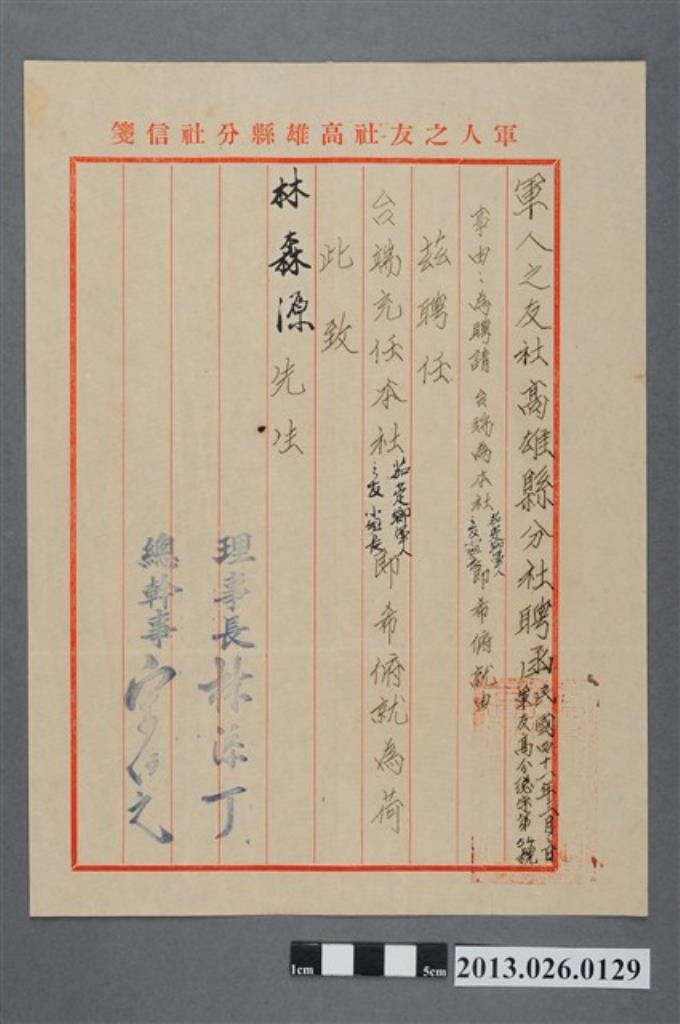 軍人之友社高雄縣分社信箋
軍人之友社高雄縣分社聘函
民國四十八年 月 日
軍友高分總字第 號
事由:為聘請 台端為本社茄萣鄉軍人之友小組長即希俯就由
茲聘任
台端充任本社茄萣鄉軍人之友小組長即希俯就為荷
此致
林森源先生
理事長 林 丁
總幹事
1cm
5cm
2013.026.0129